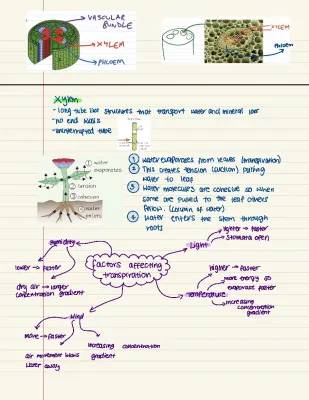 VASCULAR
BUNDLE
XYLEM
PHLOEM
XYLEM
Phloem
Xylem
- long tube like structures that transport water and mineral ions
- no end walls
- uninterrupted tube
① water
evaporates
② tension
③ cohesion
④ water
enters
① Water evaporates from leaves (transpiration)
② This creates tension (suction) pulling
water to leaf
③ Water molecules are cohesive so when
some are pulled to the leaf others
follow. (column of water)
④ Water enters the stem through
roots
factors affecting
transpiration
Humidity
lower → faster
dry air → larger
concentration gradient
Light
lighter → faster
Stomata open
Temperature
higher → faster
more energy so
evaporate faster
increasing
concentration
gradient
Wind
more → faster
air movement blows
away
increasing concentration
gradient